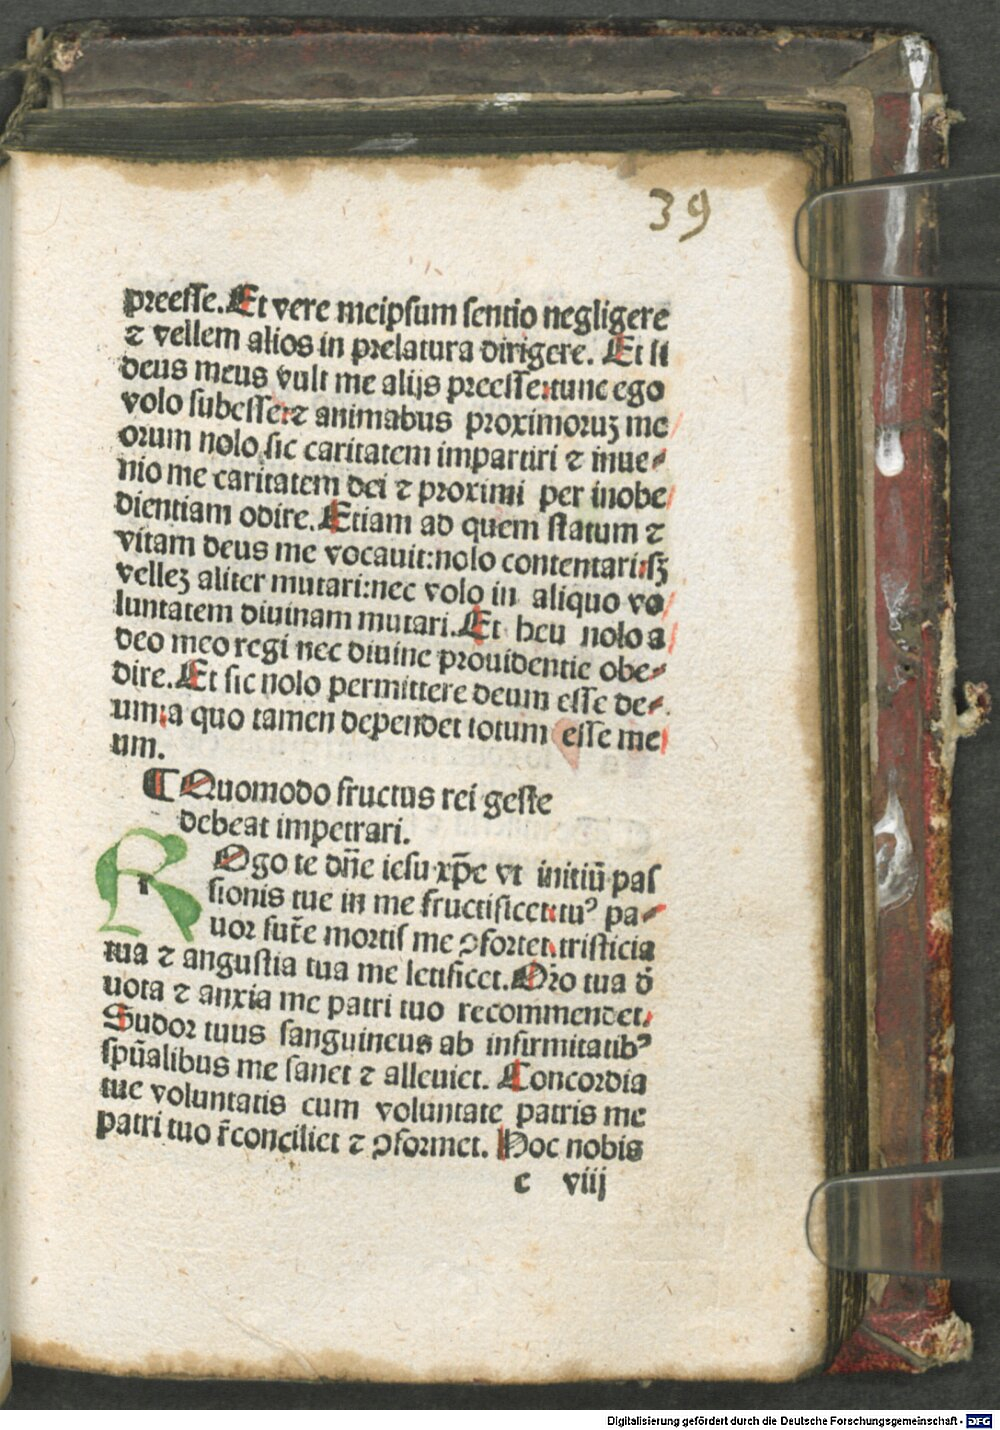 39
preesse. Et vere meipsum sentio negligere
⁊ vellem alios in prelatura dirigere. Et si
deus meus vult me alijs preesse: tunc ego
volo subesse: ⁊ animabus proximoruꝫ me
orum nolo sic caritatem impartiri ⁊ inue⸗
nio me caritatem dei ⁊ proximi per inobe
dientiam odire. Etiam ad quem statum ⁊
vitam deus me vocauit: nolo contentari: sꝫ
velleꝫ aliter mutari: nec volo in aliquo vo
luntatem diuinam mutari. Et heu nolo a
deo meo regi nec diuine prouidentie obe⸗
dire. Et sic nolo permittere deum esse de⸗
um: a quo tamen dependet totum esse me
um.
¶ Quomodo fructus rei geste
debeat impetrari.
ROgo te dn̄e iesu xp̄e vt initiū pas
sionis tue in me fructificet: tuꝰ pa⸗
uor fut᷑e mortis me ꝯfortet. tristicia
tua ⁊ angustia tua me letificet. Or̄o tua d̄
uota ⁊ anxia me patri tuo recommendet.
Sudor tuus sanguineus ab infirmitatibꝰ
spūalibus me sanet ⁊ alleuiet. Concordia
tue voluntatis cum voluntate patris me
patri tuo r̄conciliet ⁊ ꝯformet. Hoc nobis
c viij
Digitalisierung gefördert durch die Deutsche Forschungsgemeinschaft - DFG